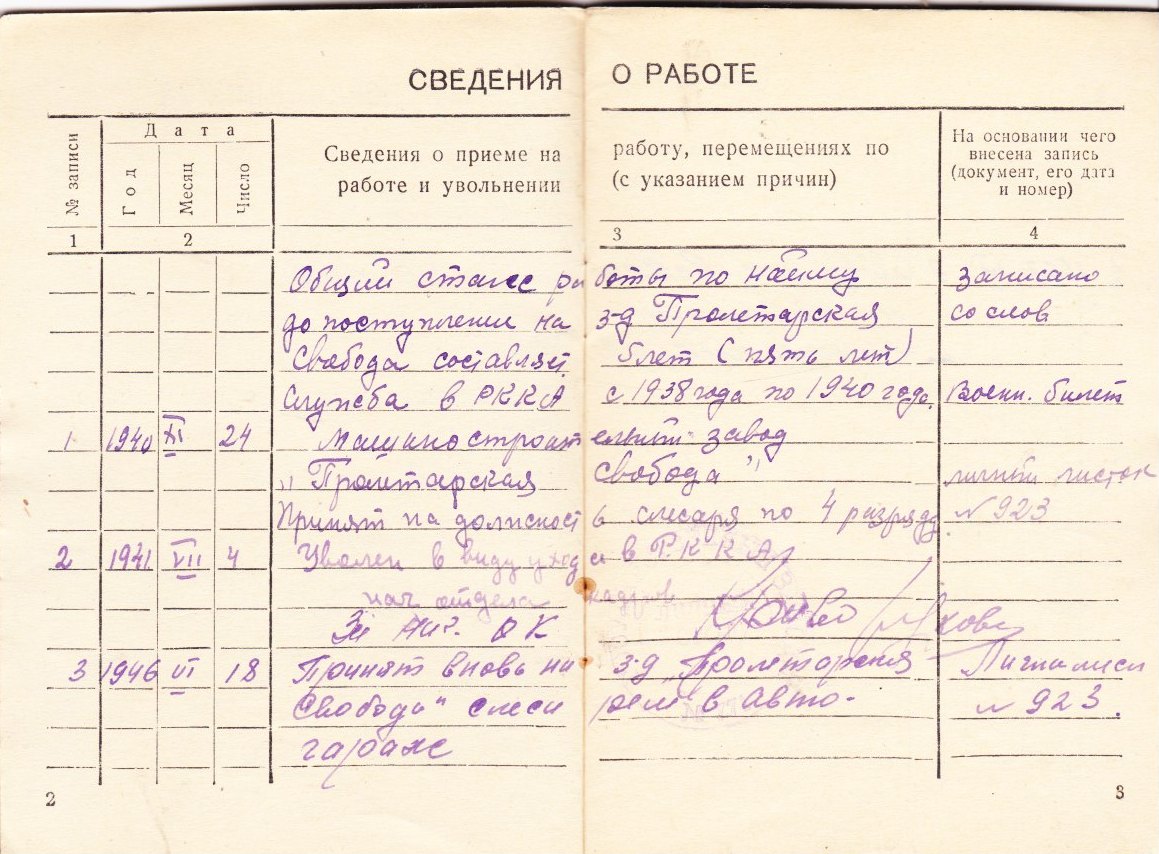 СВЕДЕНИЯ О РАБОТЕ
№ записи
Дата
Год
Месяц
Число
Сведения о приеме на работу, перемещениях по
работе и увольнении (с указанием причин)
На основании чего
внесена запись
(документ, его дата
и номер)
1 2 3 4
Общий стаж работы по найму Записано
до поступления на з-д Пролетарская со слов
Свобода составляет 5 лет (пять лет)
Служба в РККА с 1938 года по 1940 года. Воени. билет
1 1940 XI 24 Машиностроительный завод
"Пролетарская Свобода" личный листок
Принят на должность слесаря по 4 разряду. № 923
2 1941 VII 4 Уволен в виду ухода в Р.К.К.А.
нач отдела кадров
ОК
3 1946 VI 18 Принят вновь на з-д "Пролетарская
Свобода" слесарем в авто- № 923.
гараж
2 3